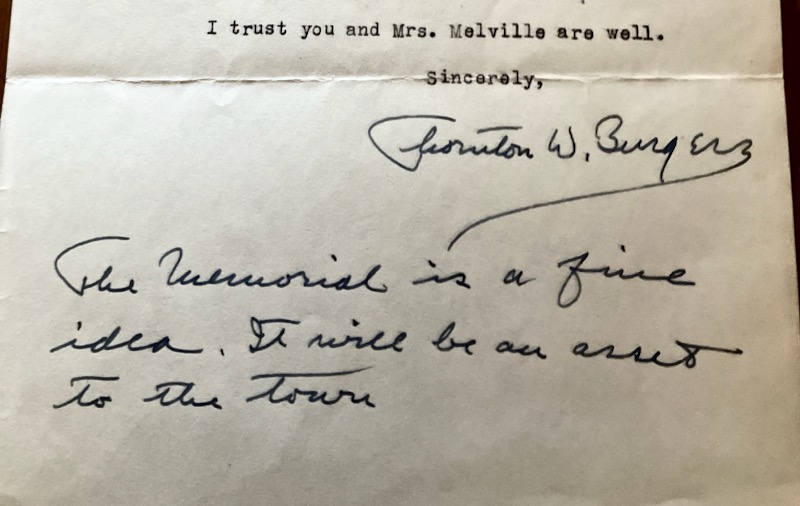 I trust you and Mrs. Melville are well.
Sincerely,
Thornton W. Burgess
The Memorial is a fine
idea. It will be an asset
to the town